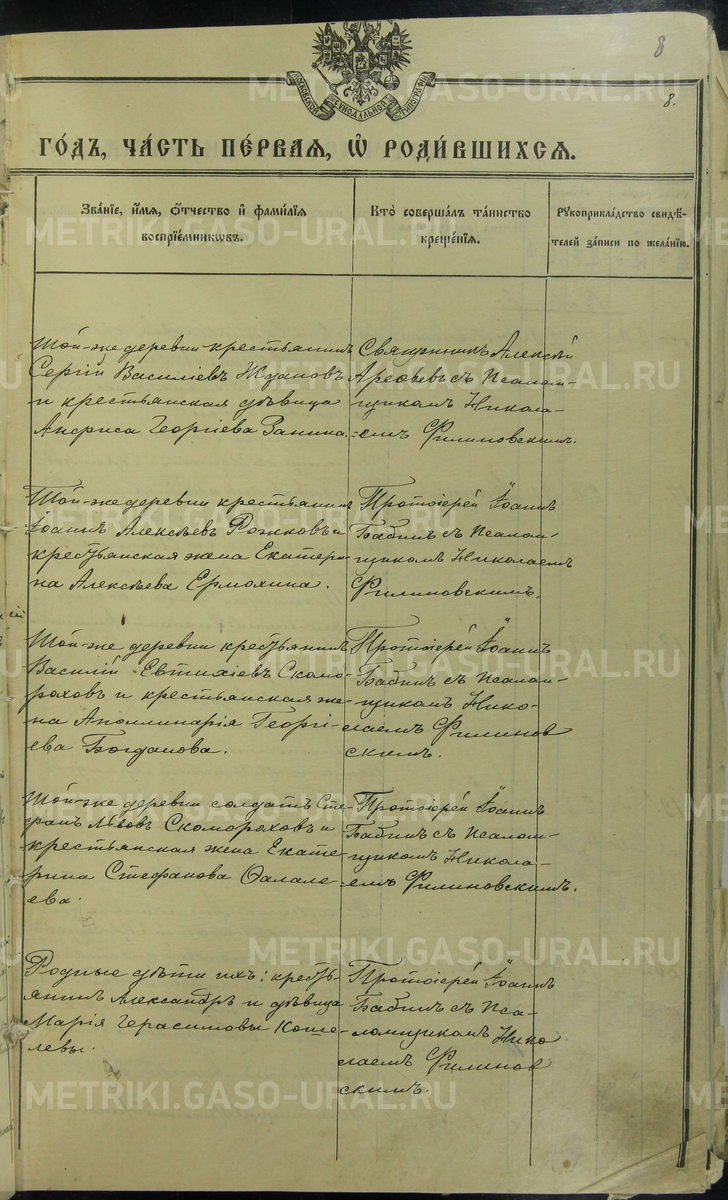 8
8.
МОСКОВСКОЙ СУНОДАЛЬНОЙ ТИПОГРАФІИ
ГО́ДЪ, ЧА́СТЬ ПЕ́РВАЯ, Ѡ҆ РОДИ́ВШИХСЯ.
Зва́нїе, и҆́мя, ѻ҆́тчество и҆ фами́лїя
воспрїе́мникѡвъ.
Кто̀ соверша́лъ та́инство
креще́нїя.
Рꙋкоприкла́дство свидѣ́-
телей за́писи по жела́нїю.
Той-же деревни крестьянинъ
Сергій Василіевъ Ждановъ
и крестьянская дѣвица
Анфиса Георгіева Занина.
Священникъ Алексѣй
Арефьевъ съ Псалом-
щикомъ Никола-
емъ Филиновскимъ.
Той-же деревни крестьянинъ
Іоаннъ Алексѣевъ Рожковъ и
крестьянская жена Екатери-
на Алексѣева Ермохина.
Протоіерей Іоаннъ
Бабинъ съ Псалом-
щикомъ Николаемъ
Филиновскимъ.
Той-же деревни крестьянинъ
Василій Евтихіевъ Скомо-
роховъ и крестьянская же-
на Аполлинарія Георгі-
ева Богданова.
Протоіерей Іоаннъ
Бабинъ съ Псалом-
щикомъ Нико-
лаемъ Филинов
скимъ.
Той-же деревни солдатъ Сте-
фанъ Львовъ Скомороховъ и
крестьянская жена Екате-
рина Стефанова Ѳалале-
ева.
Протоіерей Іоаннъ
Бабинъ съ Псалом-
щикомъ Никола-
емъ Филиновскимъ.
Родные дѣти ихъ: кресть-
янинъ Александръ и дѣвица
Марія Герасимовы Коше-
левы.
Протоіерей Іоаннъ
Бабинъ съ Пса-
ломщикомъ Нико
лаемъ Филинов
скимъ.
METRIKI.GASO-URAL.RU
METRIKI.GASO-URAL.RU
METRIKI.GASO-URAL.RU
METRIKI.GASO-URAL.RU
METRIKI.GASO-URAL.RU
METRIKI.GASO-URAL.RU
METRIKI.GASO-URAL.RU
METRIKI.GASO-URAL.RU